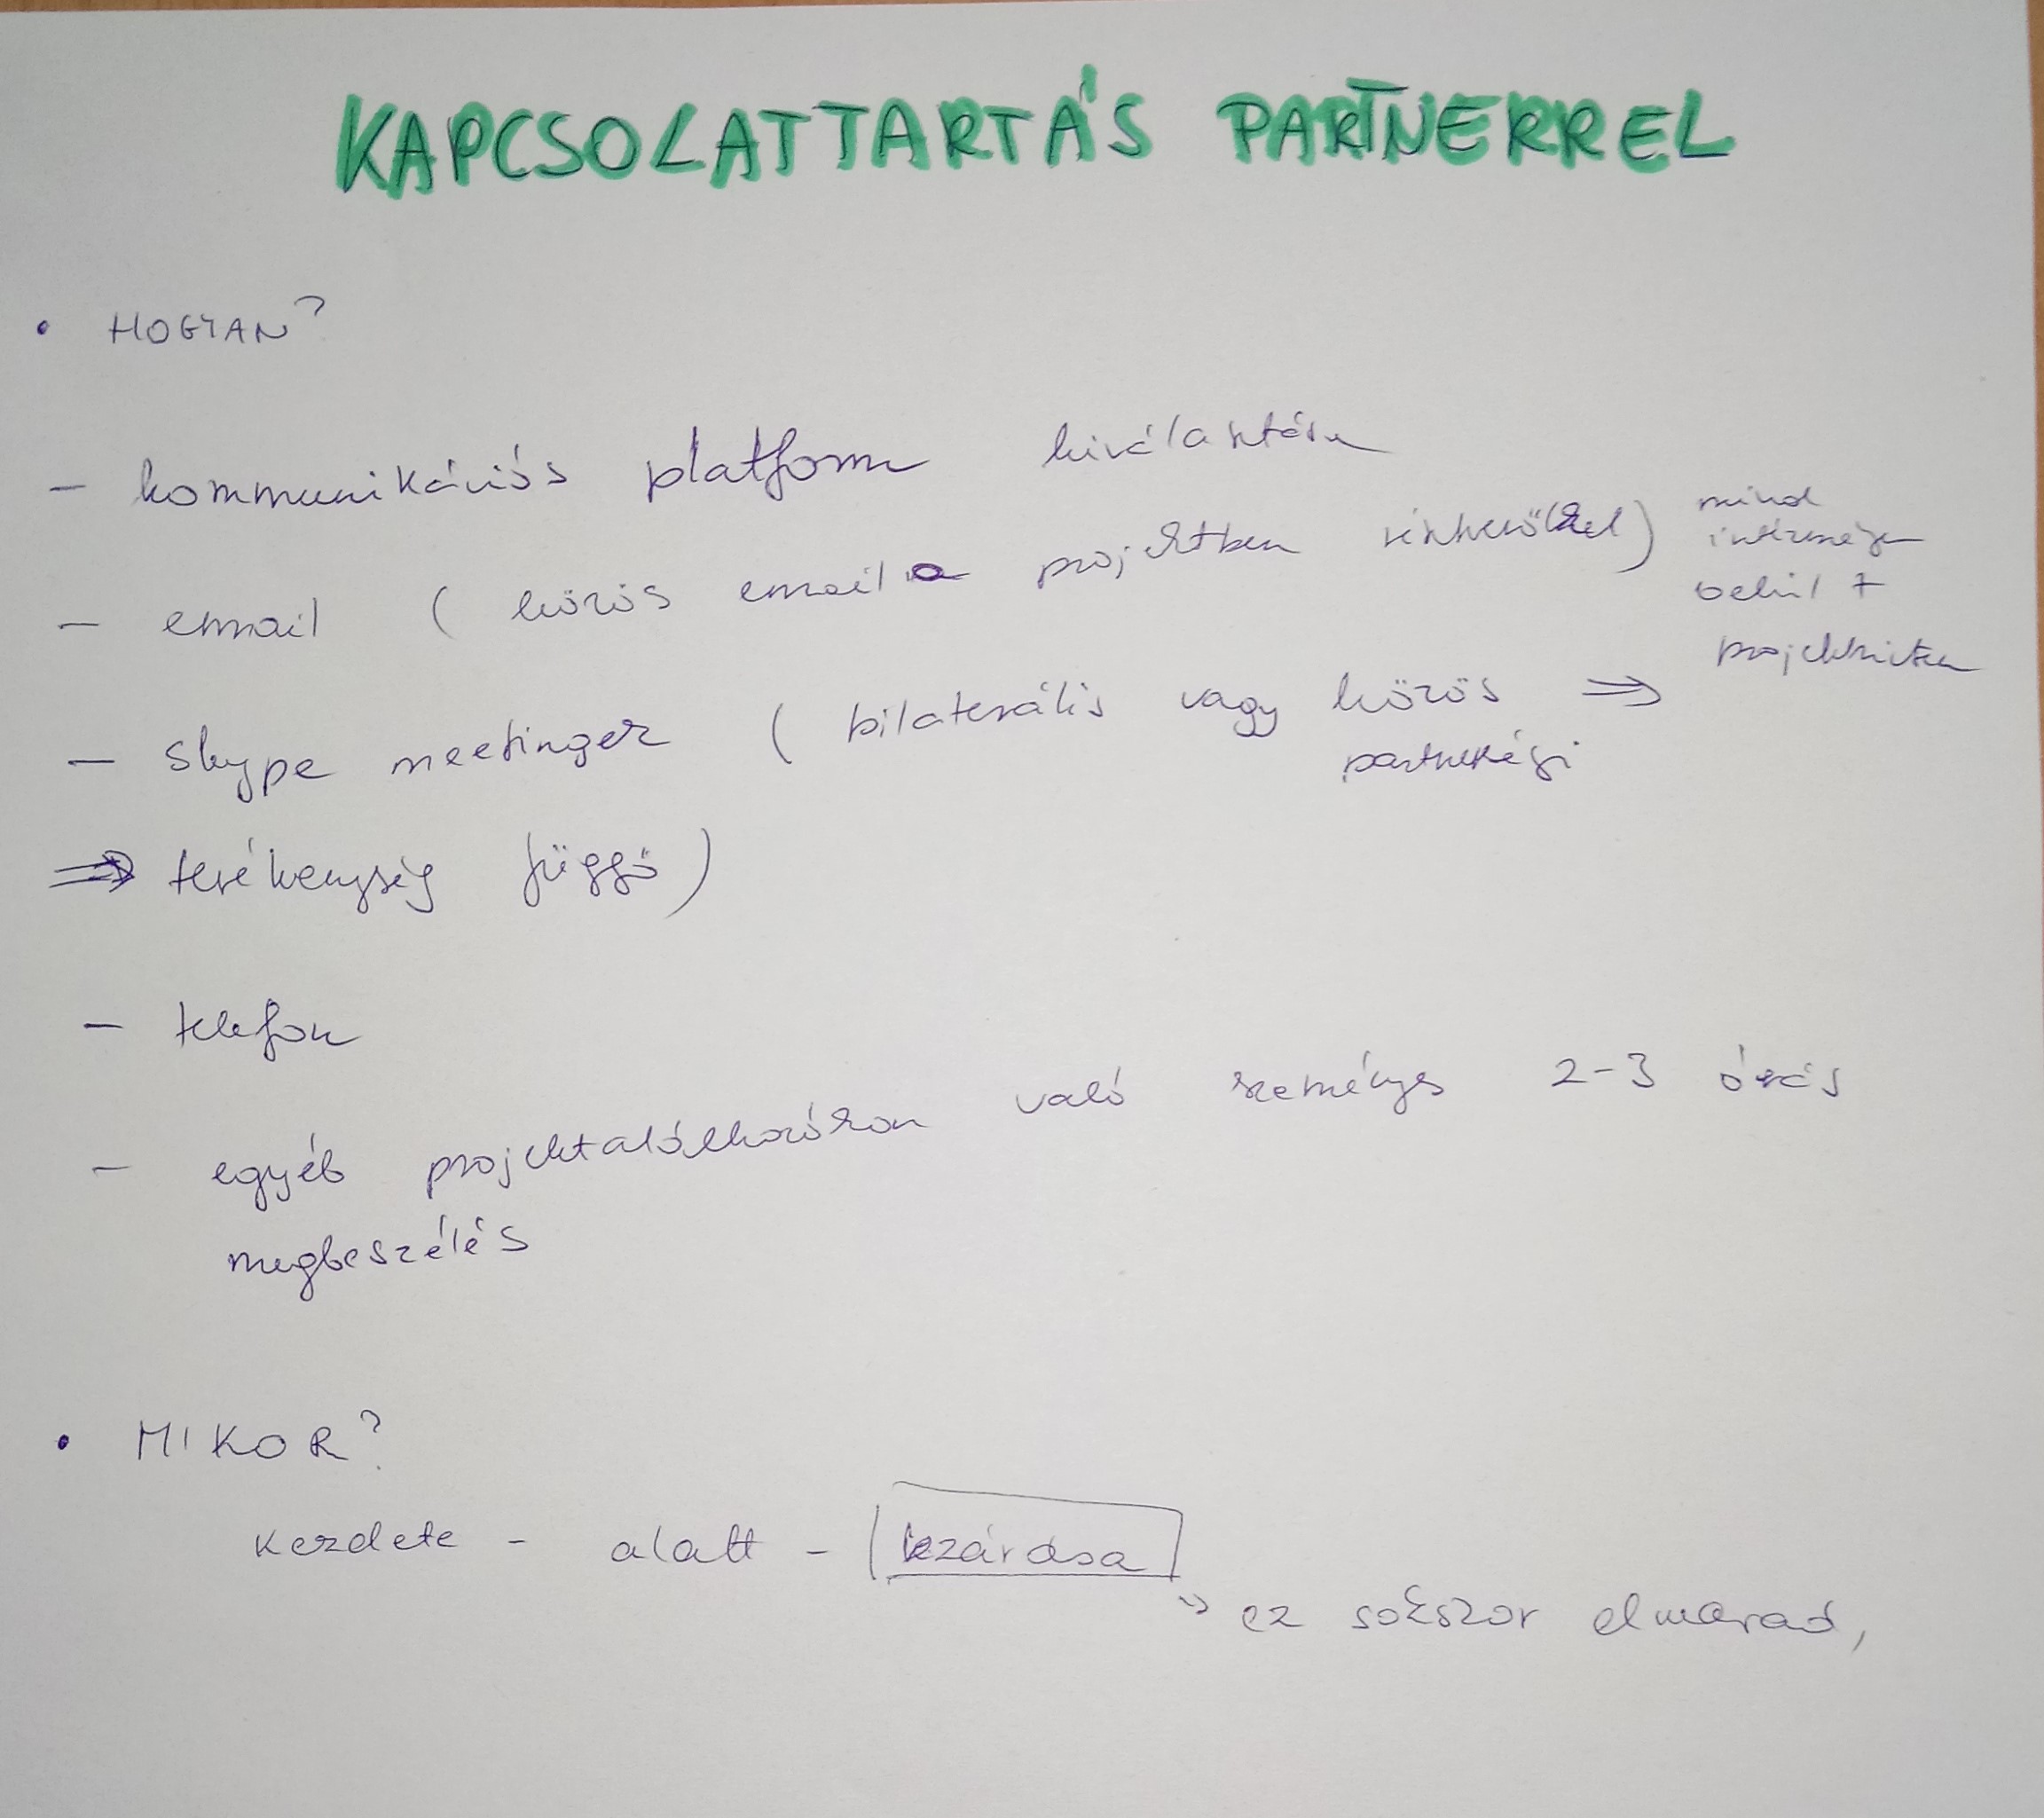 KAPCSOLATTARTÁS PARTNERREL
• HOGYAN?
- kommunikációs platform kiválasztása
- email (közös email a projektben résztvevőkkel) mind
intézményen
belül +
projektszinten
- skype meetingek (bilaterális vagy közös ⇒
partnerségi
⇒ tevékenység függő)
- telefon
- egyéb projekttalálkozókon való személyes 2-3 órás
megbeszélés
• MIKOR?
kezdete - alatt - lezárása
⇒ ez sokszor elmarad,